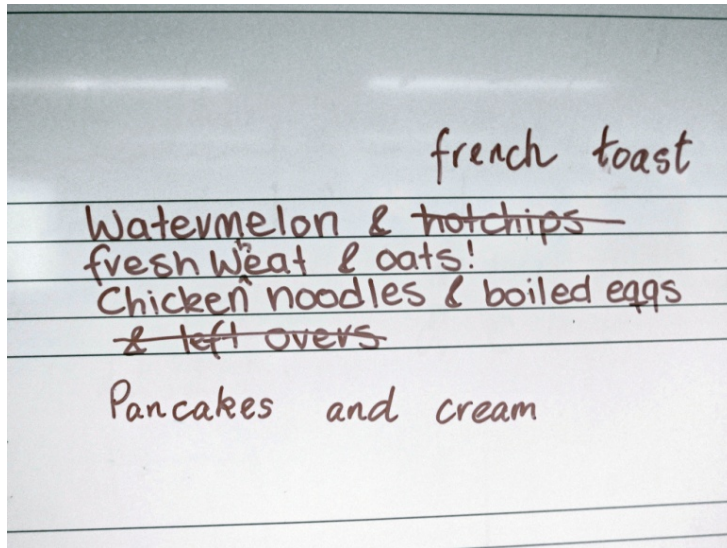 french toast
Watermelon & hotchips
fresh wheat & oats!
Chicken noodles & boiled eggs
& left overs
Pancakes and cream